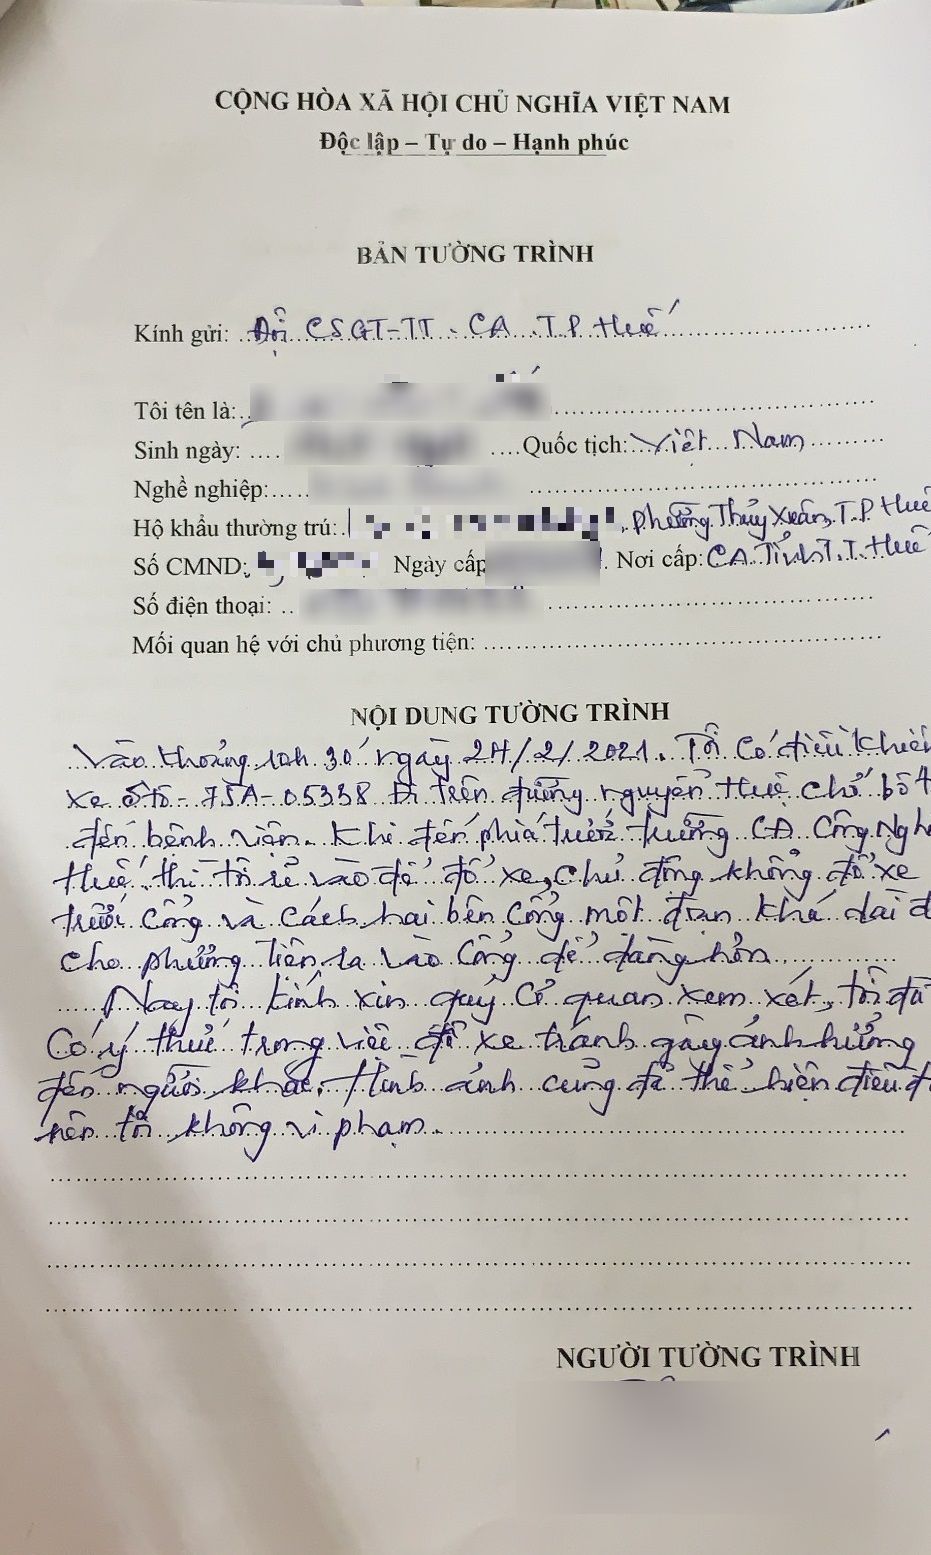 CỘNG HÒA XÃ HỘI CHỦ NGHĨA VIỆT NAM
Độc lập – Tự do – Hạnh phúc
BẢN TƯỜNG TRÌNH
Kính gửi: Đội CSGT-TT - CA T.P Huế
Tôi tên là:
Sinh ngày: Quốc tịch: Việt Nam
Nghề nghiệp:
Hộ khẩu thường trú: , phường Thủy Xuân, T.P Huế
Số CMND: Ngày cấp Nơi cấp: CA Tỉnh T.T. Huế
Số điện thoại:
Mối quan hệ với chủ phương tiện:
NỘI DUNG TƯỜNG TRÌNH
Vào khoảng 10h 30' ngày 24/2/2021. Tôi có điều khiển
xe ôtô - 75A-05338 Đi trên đường nguyễn Huệ chở bố
đến bệnh viện. Khi đến phía trước trường CĐ Công Ngh
Huế, thì tôi rẽ vào để đổ xe, chủ động không đổ xe
trước cổng và cách hai bên cổng một đoạn khá dài
cho phương tiện ra vào cổng dể dàng hơn.
Nay tôi kính xin quý cơ quan xem xét, tôi đã
có ý thức trong việc đổ xe tránh gây ảnh hưởng
đến người khác. Hình ảnh cũng đã thể hiện điều
nên tôi không vi phạm.
NGƯỜI TƯỜNG TRÌNH